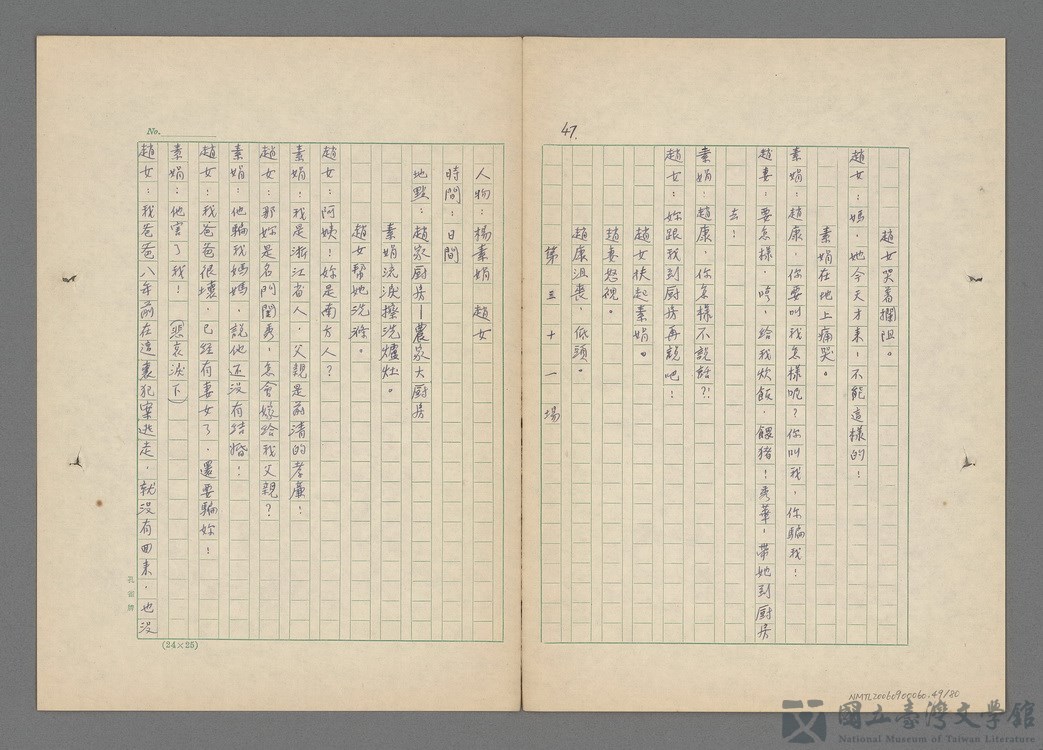 47.
趙女哭著攔阻。
趙女：媽，她今天才來，不能這樣的！
素娟在地上痛哭。
素娟：趙康，你要叫我怎樣呢？你叫我，你騙我！
趙妻：要怎樣，哼，給我炊飯，餵猪！秀華，帶她到厨房
去！
素娟：趙康，你怎樣不說話？！
趙女：妳跟我到厨房再說吧！
趙女扶起素娟。
趙妻怒視。
趙康沮喪，低頭。
第三十一場
人物：楊素娟　趙女
時間：日間
地點：趙家厨房—農家大厨房
素娟流淚擦洗爐灶。
趙女幫她洗滌。
趙女：阿姨！妳是南方人？
素娟：我是浙江省人，父親是前清的孝廉！
趙女：那妳是名門閨秀，怎會嫁給我父親？
素娟：他騙我媽媽，說他還没有结婚！
趙女：我爸爸很壞，已經有妻女了，還要騙妳！
素娟：他害了我！（悲哀淚下）
趙女：我爸爸八年前在這裏犯案逃走，就没有回來，也没
No.
孔雀牌
(24×25)
NMTL20060900060.49/80
國立臺灣文學館
National Museum of Taiwan Literature